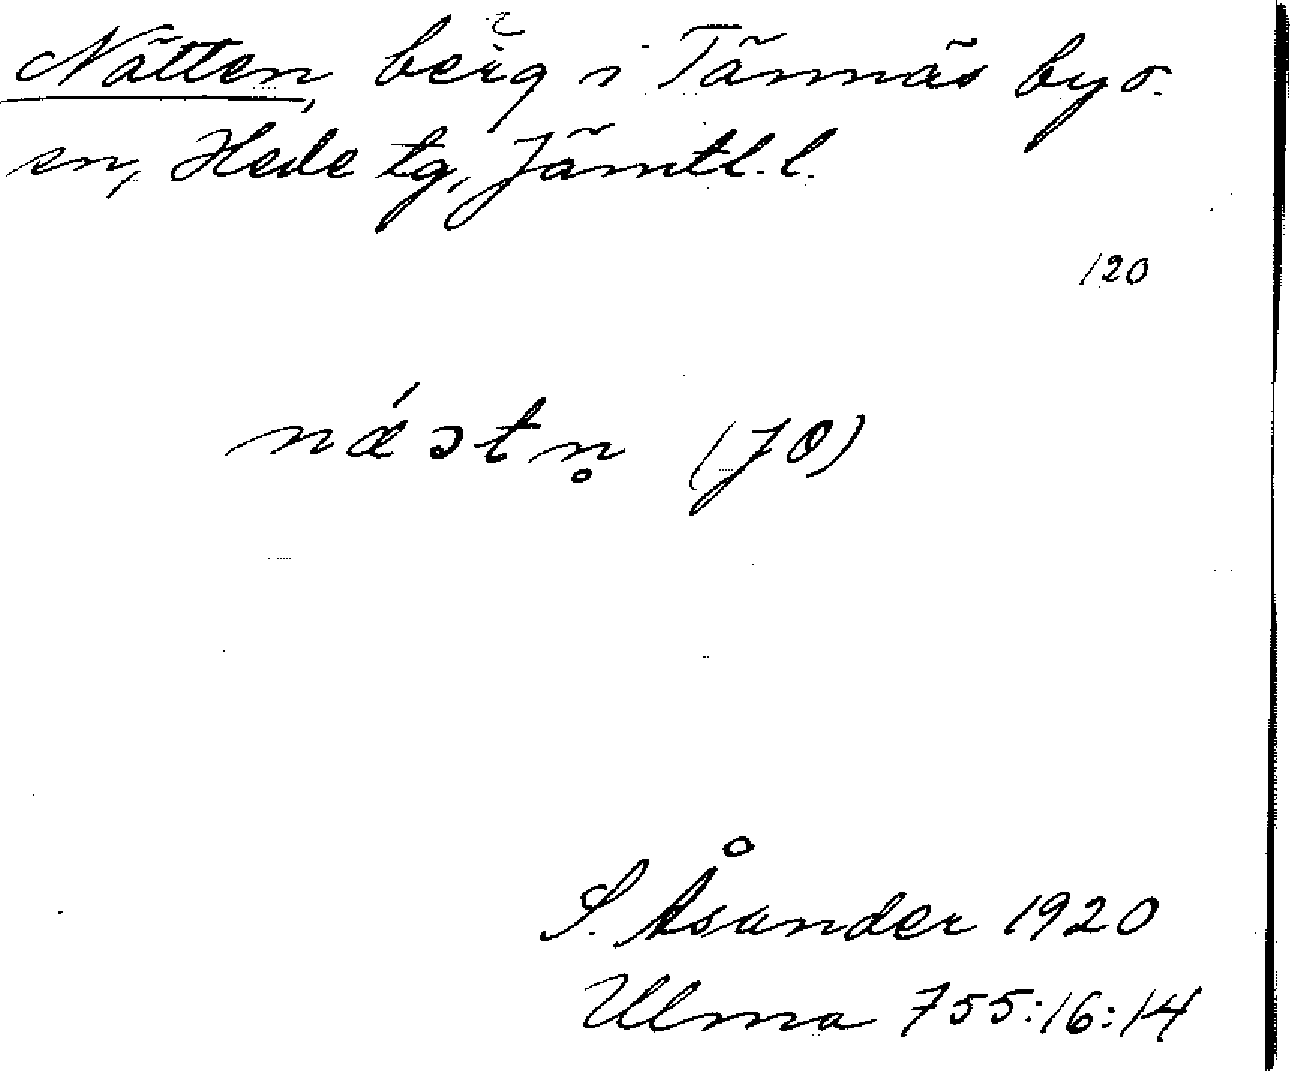 Nätten, berg i Tännäs by o.
sn, Hede tg, Jämtl. l.
120
nǽətn̥ (JO)
S. Åsander 1920
Ulma 755:16:14